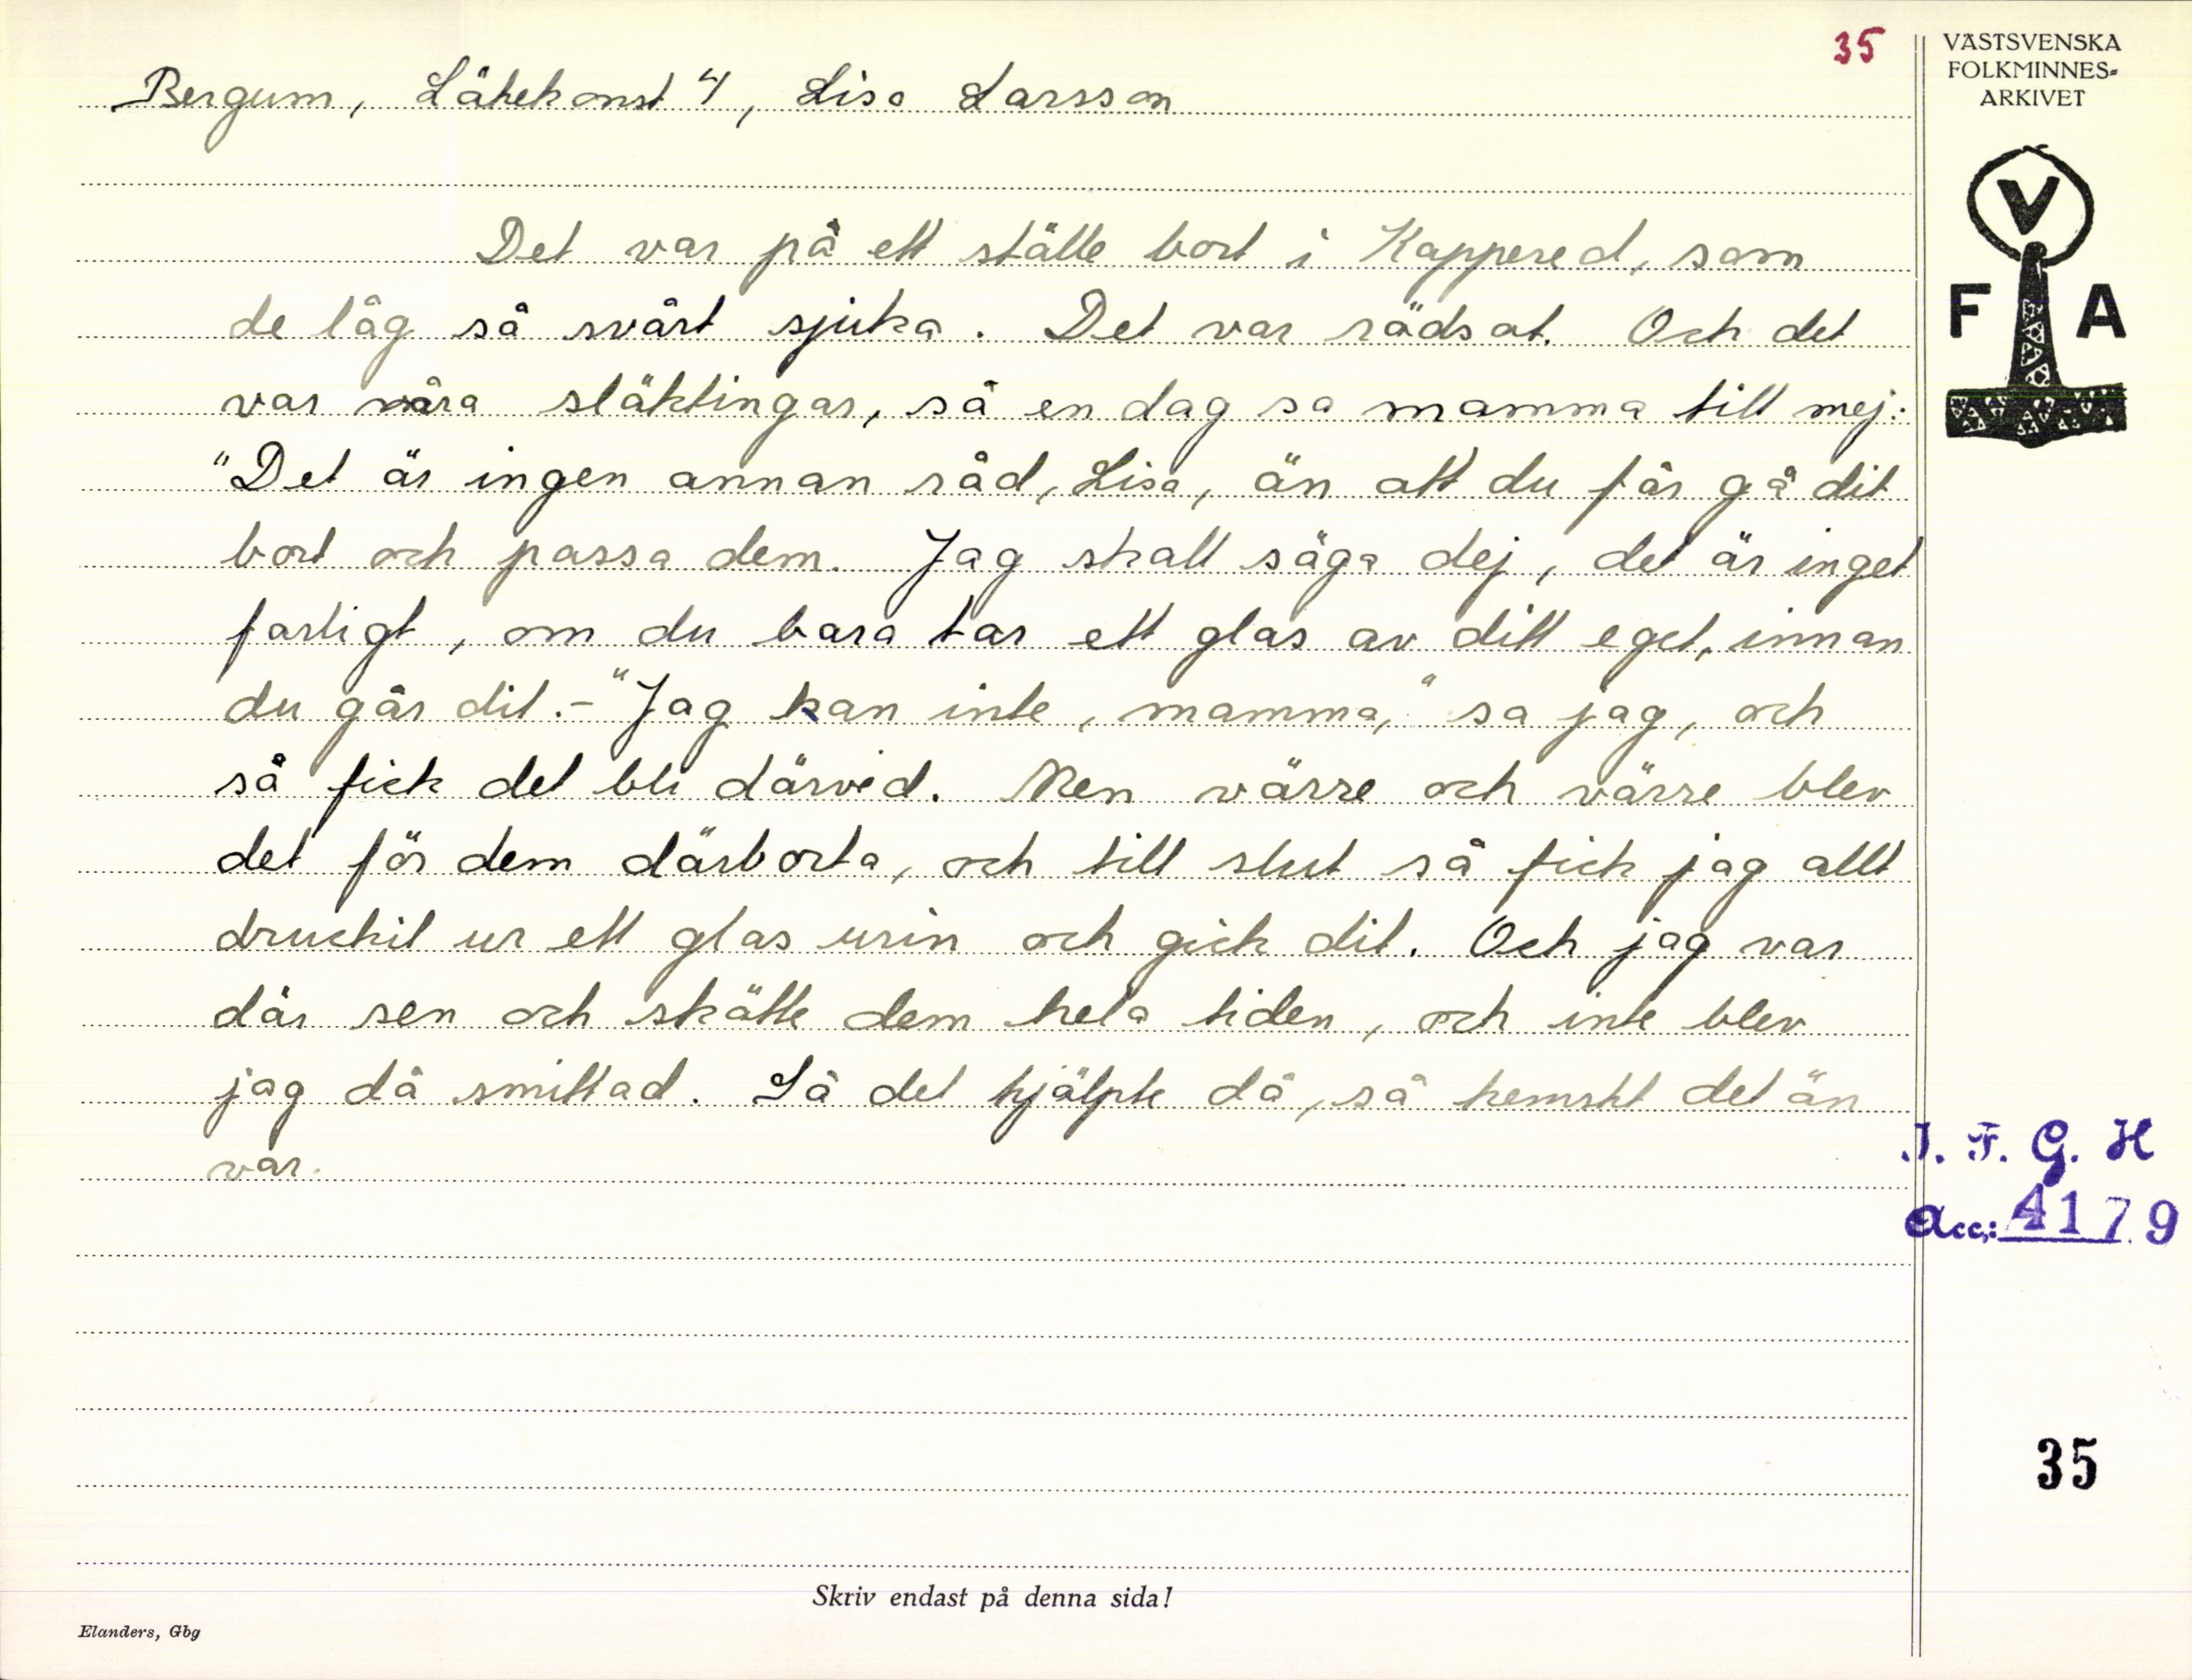 35
VÄSTSVENSKA
FOLKMINNES-
ARKIVET
Bergum, Läkekonst 4, Lisa Larsson
V
F A
Det var på ett ställe bort i Kappered, som
de låg så svårt sjuka. Det var rädsat. Och det
var våra släktingar, så en dag sa mamma till mej:
"Det är ingen annan råd, Lisa, än att du får gå dit
bort och passa dem. Jag skall säga dej, det är inget
farligt, om du bara tar ett glas av ditt eget, innan
du går dit.- "Jag kan inte, mamma," sa jag, och
så fick det bli därvid. Men värre och värre blev
det för dem därborta, och till slut så fick jag allt
druckit ur ett glas urin och gick dit. Och jag var
där sen och skötte dem hela tiden, och inte blev
jag då smittad. Så det hjälpte då, så hemskt det än
var.
I. F. G. H
Acc: 4179
35
Skriv endast på denna sida!
Elanders, Gbg